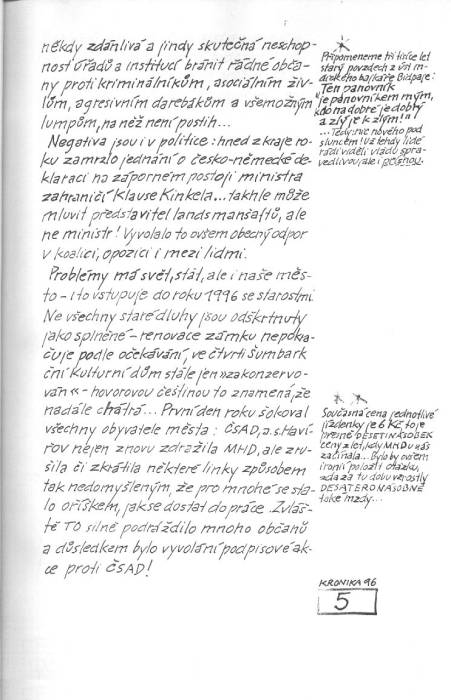 někdy zdánlivá a jindy skutečná neschop-
nost úřadů a institucí bránit řádné obča-
ny proti kriminálníkům, asociálním živ-
lům, agresivním darebákům a všemožným
lumpům, na něž není postih...
Negativa jsou i v politice: hned zkraje ro-
ku zamrzlo jednání o česko-německé de-
klaraci na záporném postoji ministra
zahraničí Klause Kinkela... takhle může
mluvit představitel landsmanšaftů, ale
ne ministr! Vyvolalo to ovšem obecný odpor
v koalici, opozici i mezi lidmi.
Problémy má svět, stát, ale i naše měs-
to - i to vstupuje do roku 1996 se starostmi.
Ne všechny staré dluhy jsou odškrtnuty
jako splněné - renovace zámku nepokra-
čuje podle očekávání, ve čtvrti Šumbark
ční Kulturní dům stále jen »zakonzervo-
ván« - hovorovou češtinou to znamená, že
nadále chátrá... První den roku šokoval
všechny obyvatele města: ČSAD, a.s. Haví-
řov nejen znovu zdražila MHD, ale zru-
šila či zkrátila některé linky způsobem
tak nedomyšleným, že pro mnohé se sta-
lo oříškem, jak se dostat do práce. Zvláš-
tě TO silně podráždilo mnoho občanů
a důsledkem bylo vyvolání podpisové ak-
ce proti ČSAD!
*
Připomeneme tři tisíce let
starý povzdech z úst in-
dického bajkaře Bidpaje:
"Ten panovník
je panovníkem mým,
kdo na dobré je dobrý
a zlý je k zlým!"
...Tedy: nic nového pod
sluncem! Už tehdy lidé
rádi viděli vládu spra-
vedlivou, ale i
* *
Současná cena jednotlivé
jízdenky je 6 Kč, to je
přesně DESETINÁSOBEK
ceny z let, kdy MHD u nás
začínala... Bylo by ovšem
ironií položit otázku,
zda za tu dobu vzrostly
DESATERONÁSOBNĚ
také mzdy...
KRONIKA 96
5